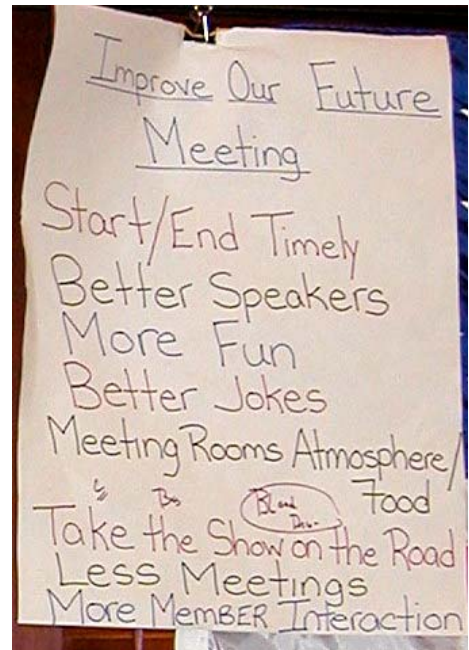 Improve Our Future
Meeting
Start/End Timely
Better Speakers
More Fun
Better Jokes
Meeting Rooms Atmosphere/
Food
Take the Show on the Road
Less Meetings
More MEMBER Interaction